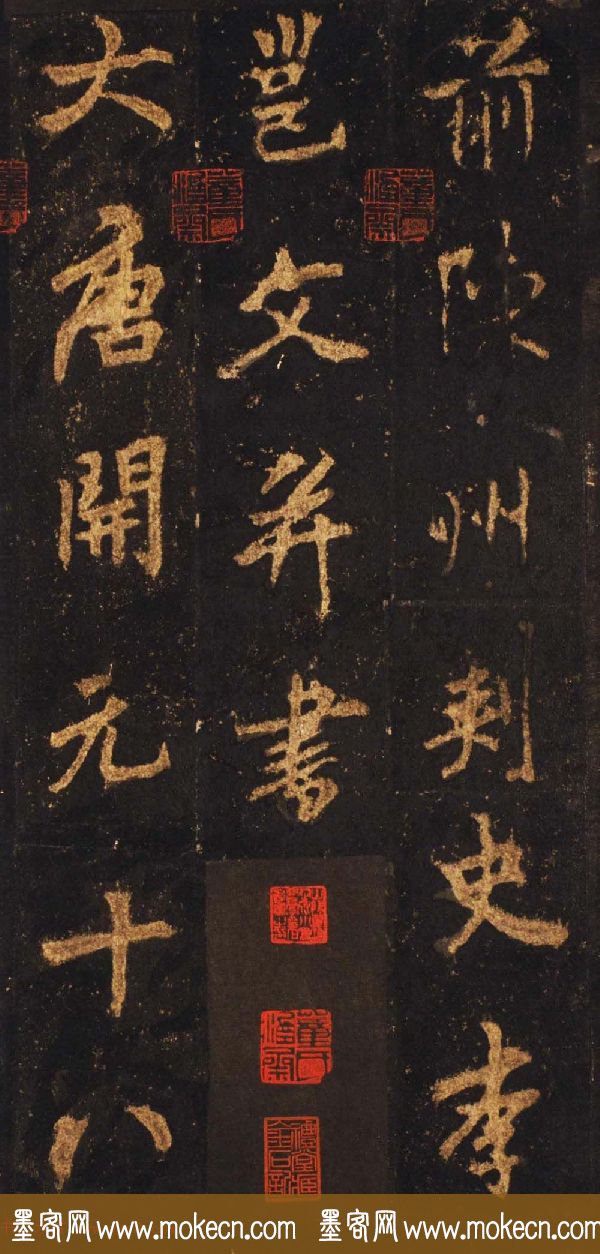 前陳州刺史李
邕文并書
大唐開元十八
墨客网 www.mokecn.com 墨客网 www.mokecn.com